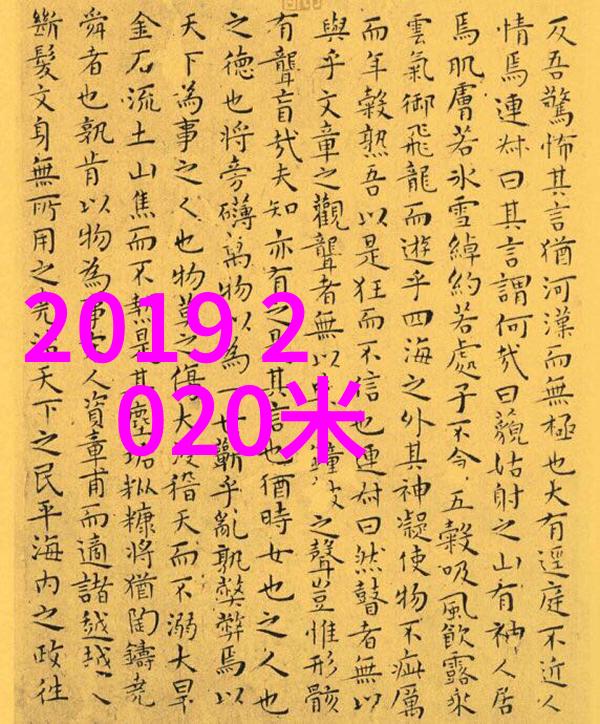 反吾驚怖其言猶河漢而無極也大有逕庭不近人
情焉連叔曰其言謂何哉曰藐姑射之山有神人居
焉肌膚若氷雪綽約若處子不食五穀吸風飲露乘
雲氣御飛龍而遊乎四海之外其神凝使物不疵厲
而年穀熟吾以是狂而不信也連叔曰然瞽者無以
與乎文章之觀聾者無以之聲豈惟形骸
有聾盲哉夫知亦有之是其言也猶時女也之人也
之德也將旁礴萬物以為一世蘄乎亂孰弊弊焉以
天下為事之人也物莫之傷大浸稽天而不溺大旱
金石流土山焦而不熱是其塵垢粃糠將猶陶鑄堯
舜者也孰肯以物為事人資章甫而適諸越越
斷髮文身無所用之堯治天下之民平海內之政往
2019 2
020米